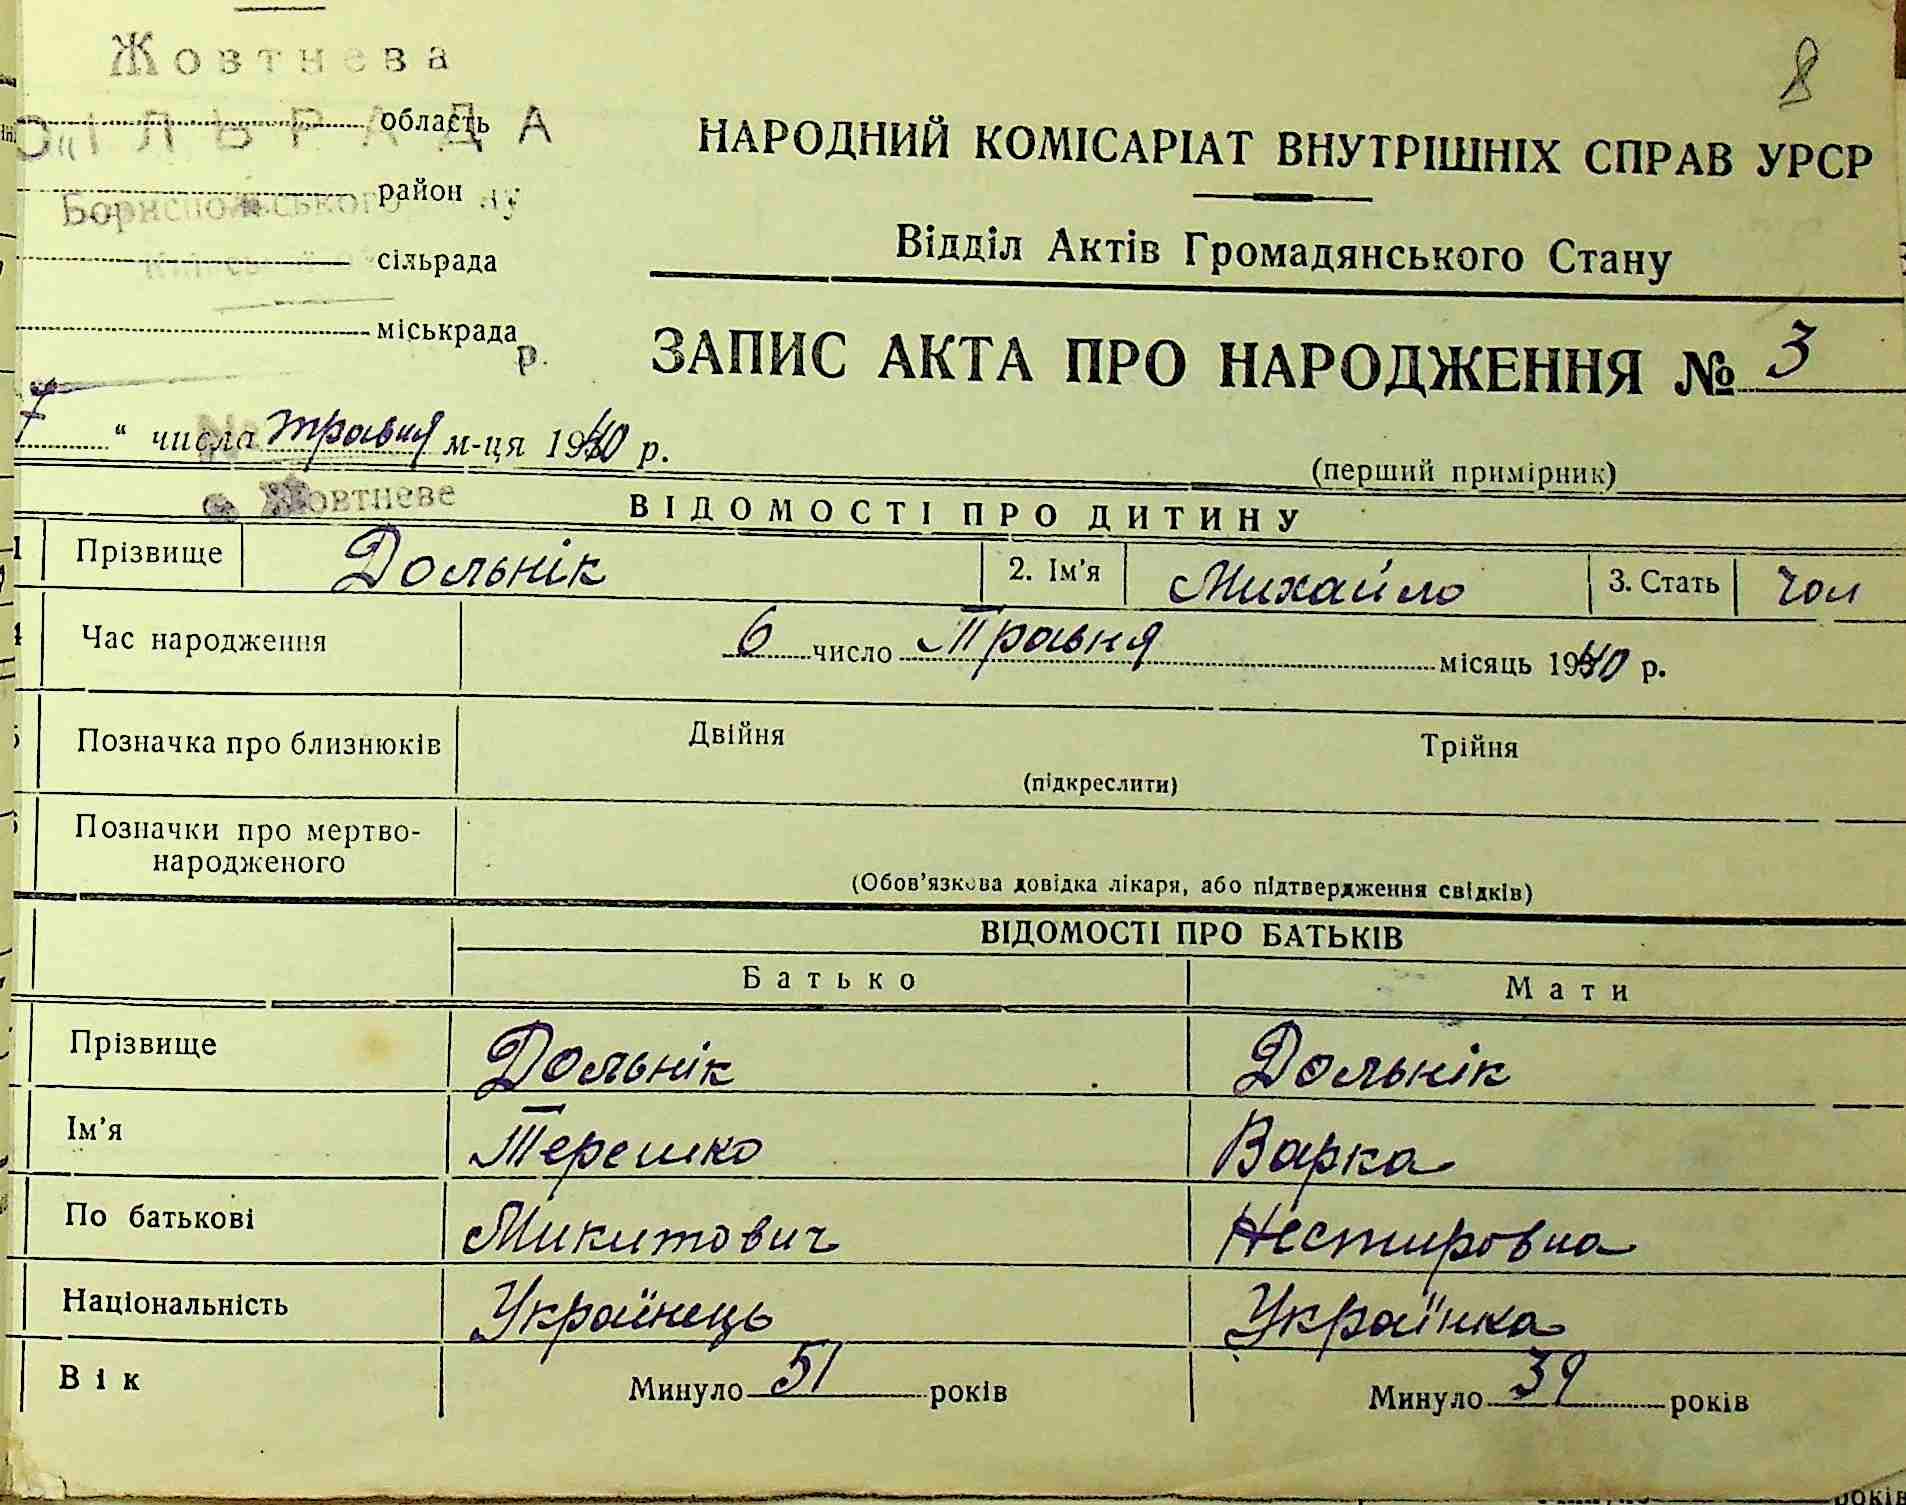 8
Жовтнева
СІЛЬРАДА область
Бориспольського район
сільрада
міськрада
р.
НАРОДНИЙ КОМІСАРІАТ ВНУТРІШНІХ СПРАВ УРСР
Відділ Актів Громадянського Стану
ЗАПИС АКТА ПРО НАРОДЖЕННЯ № 3
7 " числа травня м-ця 1940 р.
(перший примірник)
с. Жовтневе
ВІДОМОСТІ ПРО ДИТИНУ
1 Прізвище Дольнік 2. Ім'я Михайло 3. Стать чол
4 Час народження 6 число Травня місяць 1940 р.
5 Позначка про близнюків Двійня Трійня
(підкреслити)
Позначки про мертво-
народженого
(Обов'язкова довідка лікаря, або підтвердження свідків)
ВІДОМОСТІ ПРО БАТЬКІВ
Батько Мати
Прізвище Дольнік Дольнік
Ім'я Терешко Варка
По батькові Микитович Нестировна
Національність Українець Українка
Вік Минуло 51 років Минуло 39 років
років